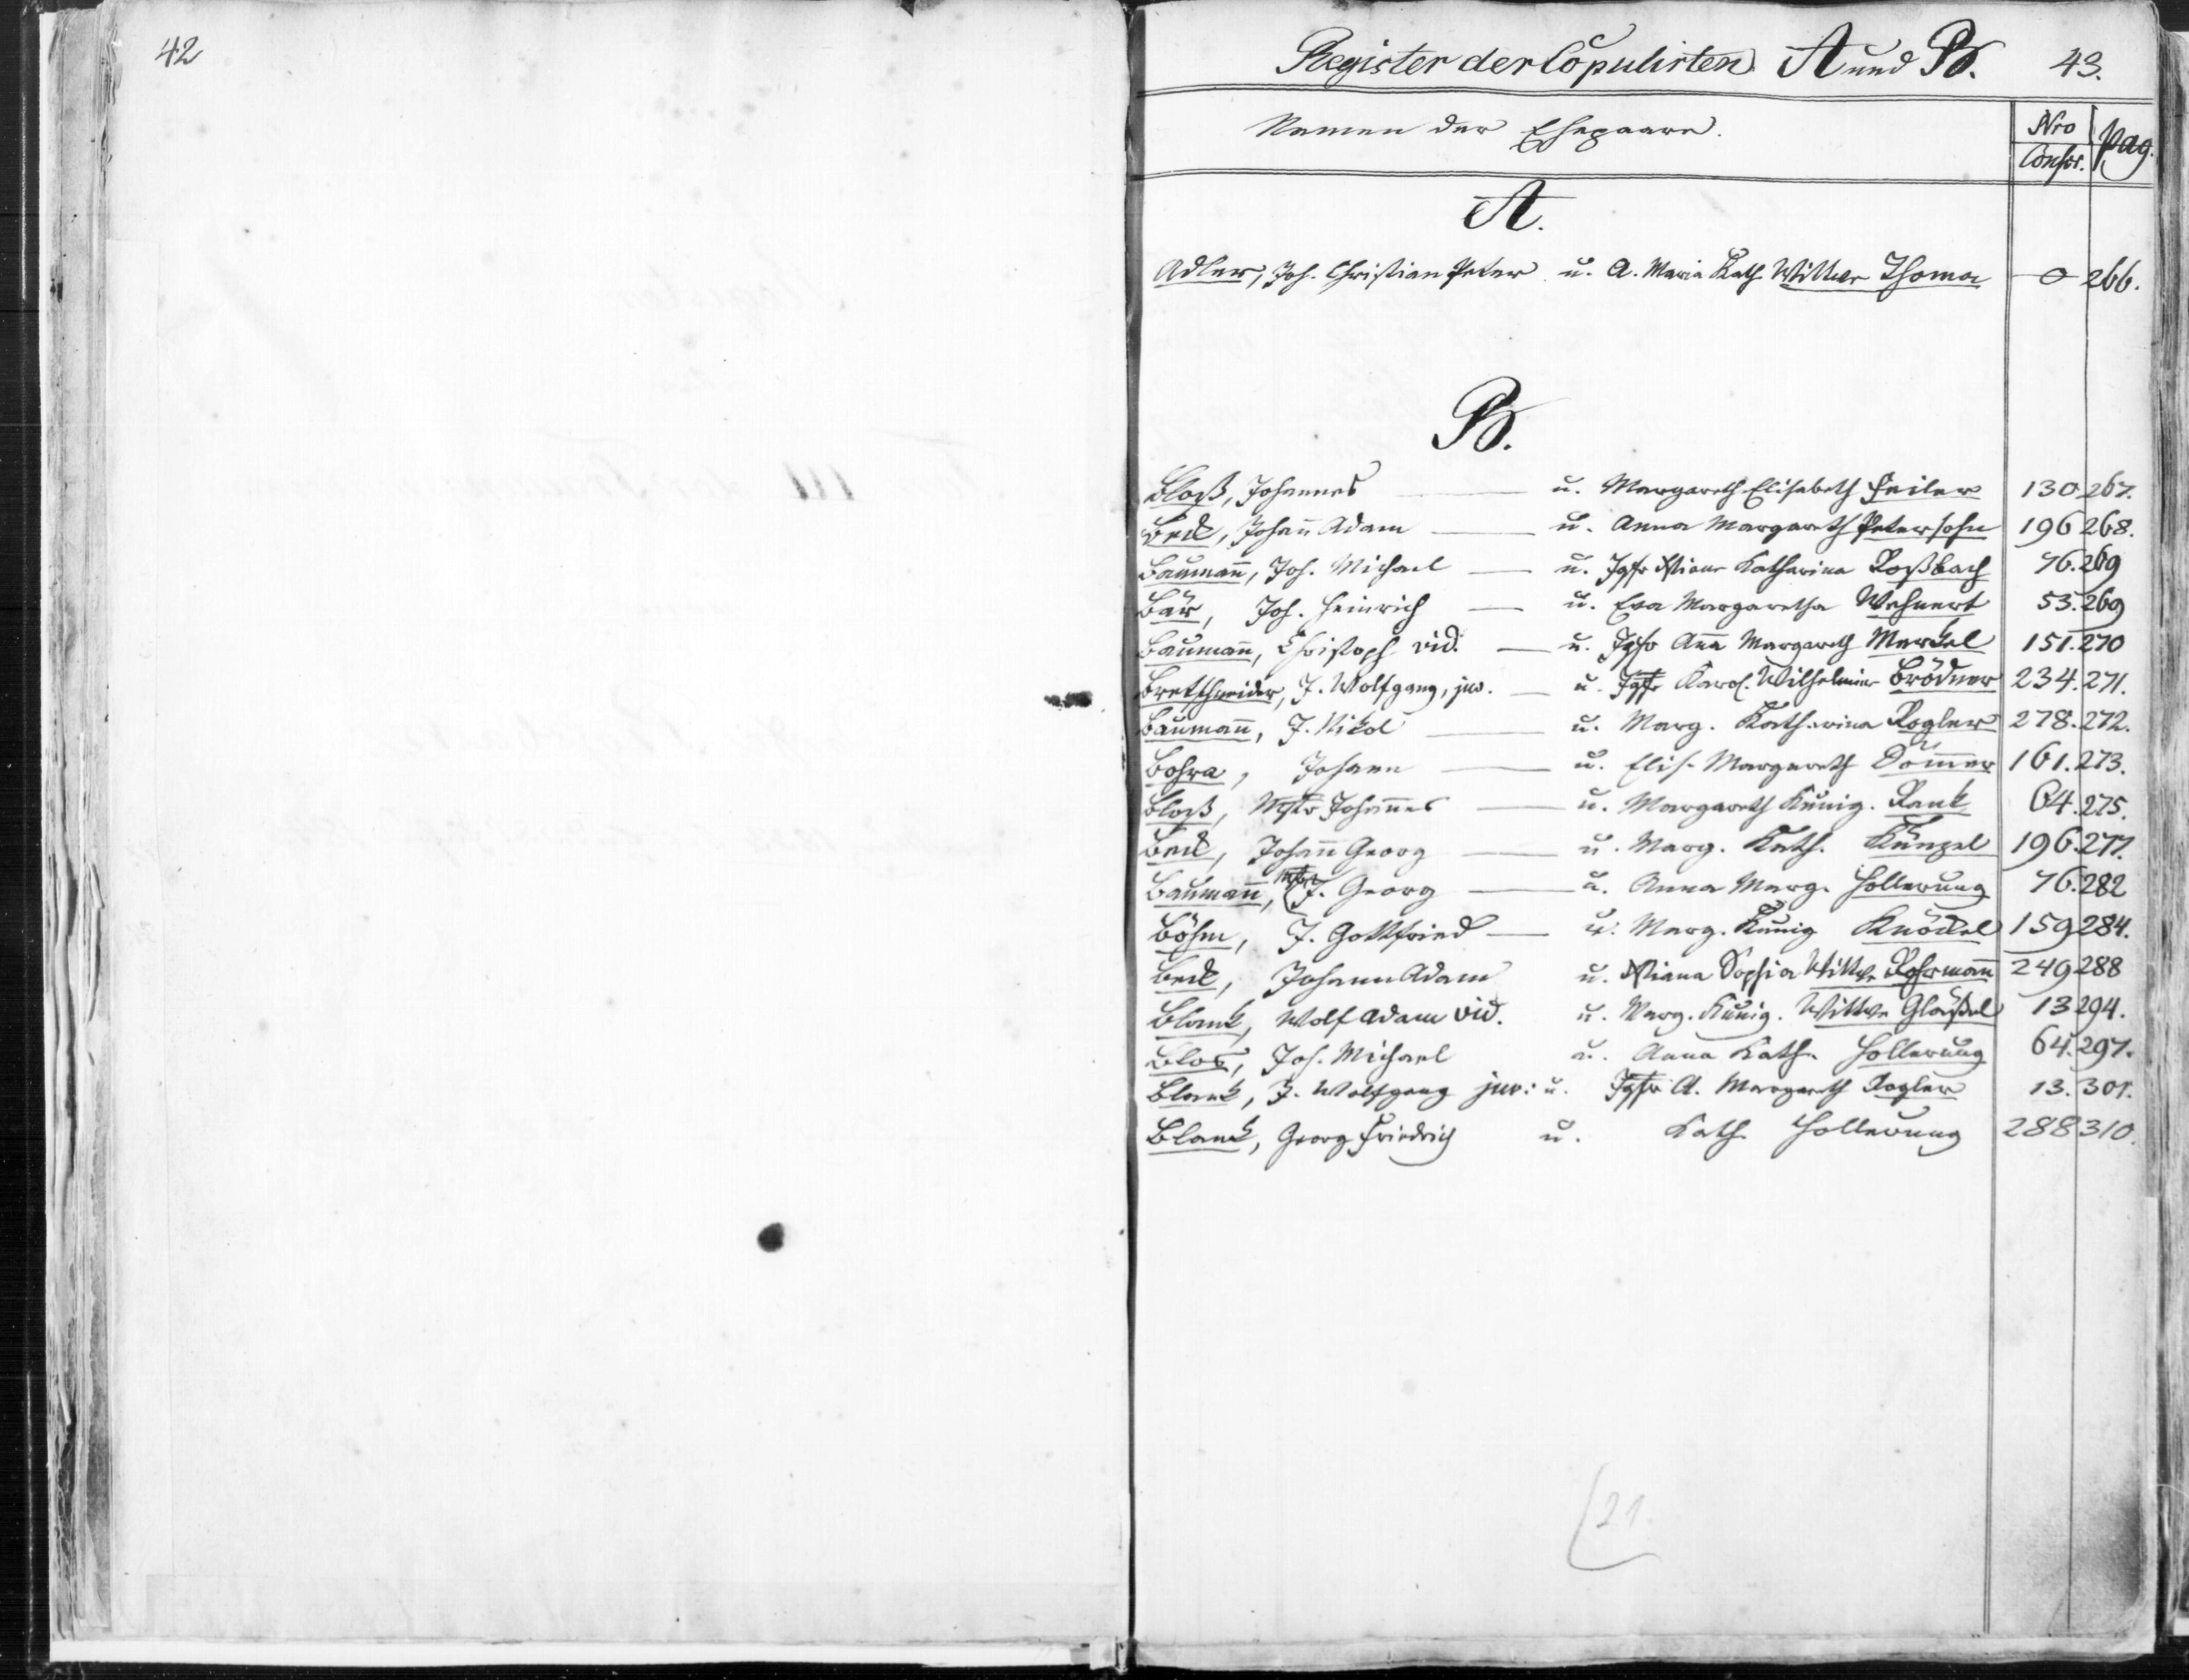 42
Register der Copulirten A und B. 43.
Namen der Ehepaare. Nro Conscr. pag.
A.
Adler, Joh. Christian Peter u. A. Maria Kath. Wittwe Thoma 0 266.
B.
Bloß, Johannes u. Margareth Elisabeth Feiler 130 267.
Beck, Johañ Adam u. Anna Margareth Petersohn 196 268.
Baumañ, Joh. Michael u. Jgfr Xstiane Katharina Roßbach 76. 269
Bär, Joh. Heinrich u. Eva Margaretha Wehnert 53. 269
Baumañ, Christoph vid. u. Jgfr Aña Margareth Merckel 151. 270
Bretschneider, J. Wolfgang, juv. u. Jgfr Karol. Wilhelmine Brödner 234. 271.
Baumañ, J. Nikol u. Marg. Katharina Rogler 278. 272.
Bohra, Johann u. Elis. Margareth Dom̃er 161. 273.
Bloß, Mstr Johañes u. Margareth Kunig. Rank 64. 275.
Beck, Johañ Georg u. Marg. Kath. Künzel 196. 277.
Baumañ, Mstr J. Georg u. Anna Marg. Hollerung 76. 282
Böhm, J. Gottfried u. Marg. Kunig Knöckel 159 284.
Beck, Johann Adam u. Xstiana Sophia Wittwe Rohrmañ 249 288
Blank, Wolf Adam vid. u. Marg. Kunig. Wittwe Gläßel 13 294.
Blos, Joh. Michael u. Anna Kath. Hollerung 64. 297.
Blank, J. Wolfgang juv: u. Jgfr A. Margareth Rogler 13. 301.
Blank, Georg Friedrich u. Kath Hollerung 288 310.
21